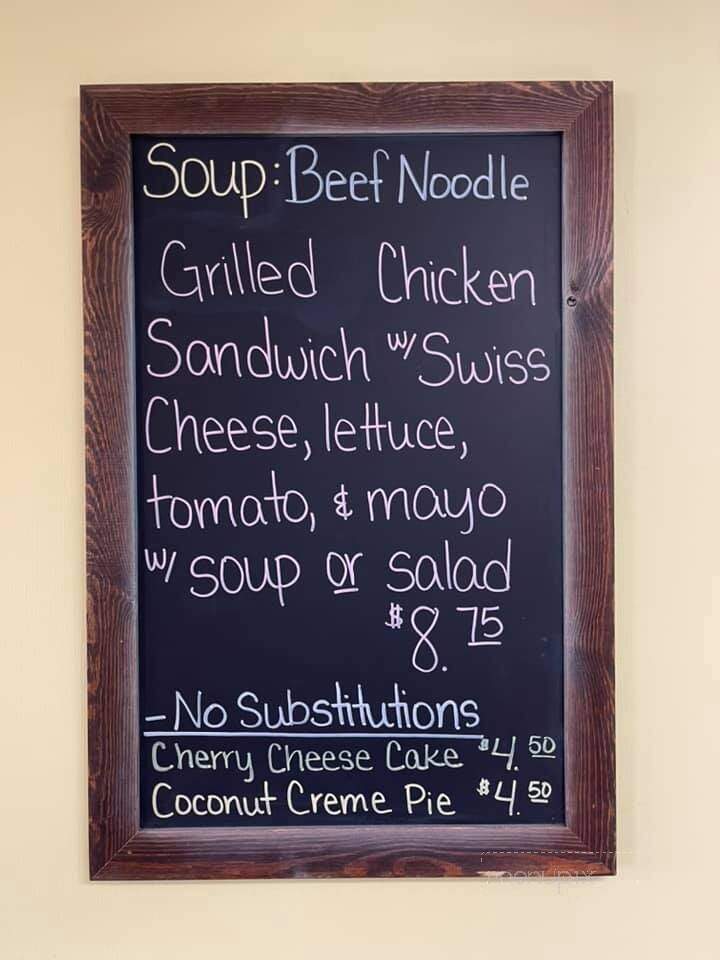 Soup: Beef Noodle
Grilled Chicken
Sandwich w/ Swiss
Cheese, lettuce,
tomato, & mayo
w/ soup or salad
$8.75
- No Substitutions
Cherry Cheese Cake $4.50
Coconut Creme Pie $4.50